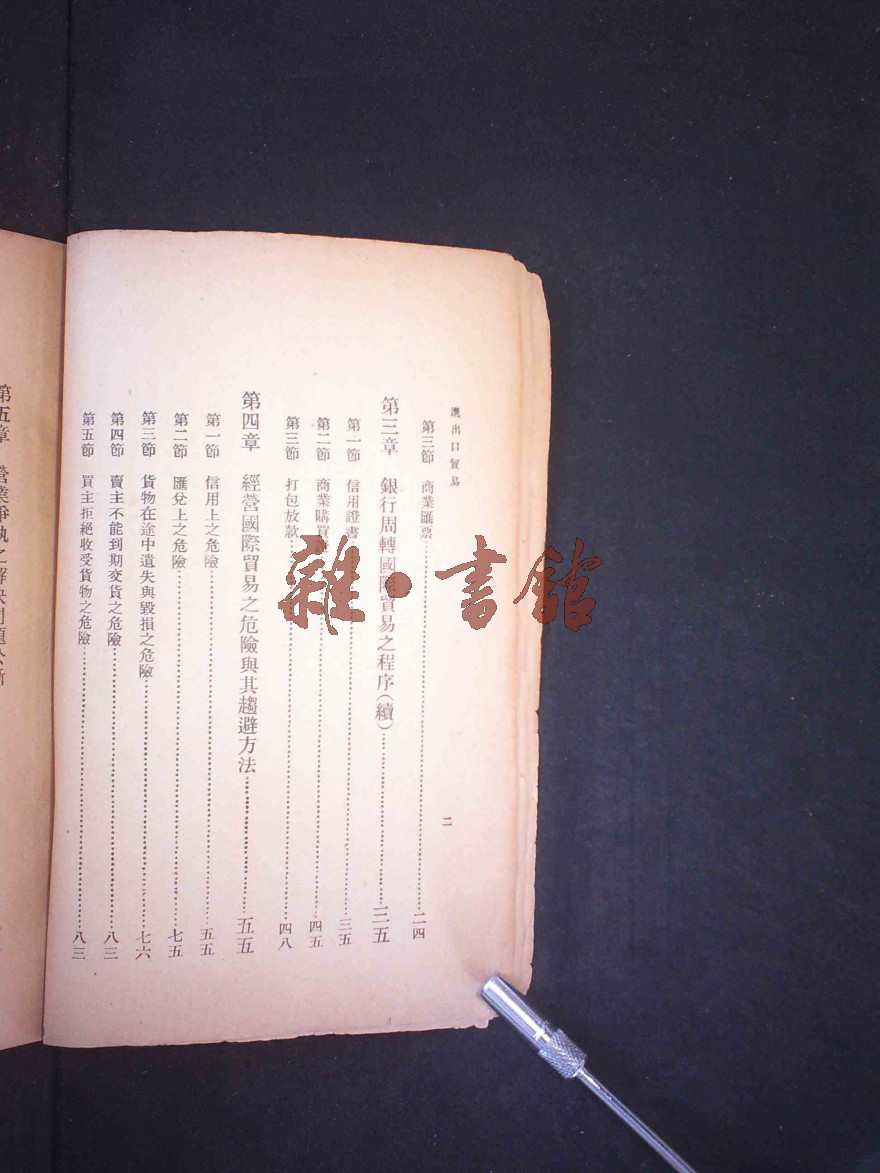 進出口貿易
二
第三節 商業匯票……二四
第三章 銀行周轉國際貿易之程序(續)……三五
第一節 信用證書……三五
第二節 商業購買……四五
第三節 打包放款……四八
第四章 經營國際貿易之危險與其趨避方法……五五
第一節 信用上之危險……五五
第二節 匯兌上之危險……七五
第三節 貨物在途中遺失與毀損之危險……七六
第四節 賣主不能到期交貨之危險……八三
第五節 買主拒絕收受貨物之危險……八三
第五章 營業爭執之解決問題公斷
雜·書館